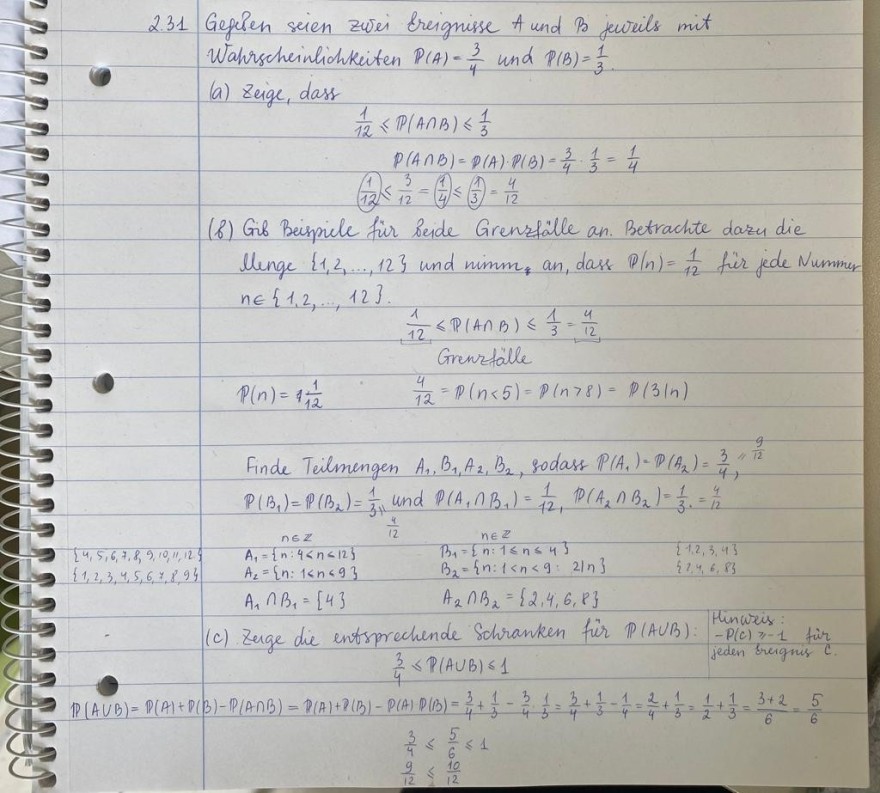 2.31 Gegeben seien zwei Ereignisse A und B jeweils mit
Wahrscheinlichkeiten ℙ(A)=3/4 und ℙ(B)=1/3.
(a) Zeige, dass
1/12 ≤ ℙ(A∩B) ≤ 1/3
ℙ(A∩B)=ℙ(A)·ℙ(B)=3/4·1/3=1/4
1/12 ≤ 3/12 = 1/4 ≤ 1/3 = 4/12
(b) Gib Beispiele für beide Grenzfälle an. Betrachte dazu die
Menge {1,2,...,12} und nimm an, dass ℙ(n)=1/12 für jede Nummer
n∈{1,2,...,12}.
1/12 ≤ ℙ(A∩B) ≤ 1/3 = 4/12
Grenzfälle
ℙ(n)=1/12 4/12 = ℙ(n<5) = ℙ(n>8) = ℙ(3|n)
Finde Teilmengen A₁, B₁, A₂, B₂, sodass ℙ(A₁)=ℙ(A₂)=3/4, = 9/12
ℙ(B₁)=ℙ(B₂)=1/3, = 4/12 und ℙ(A₁∩B₁)=1/12, ℙ(A₂∩B₂)=1/3. = 4/12
n∈ℤ n∈ℤ
{4,5,6,7,8,9,10,11,12} A₁={n: 4≤n≤12} B₁={n: 1≤n≤4} {1,2,3,4}
{1,2,3,4,5,6,7,8,9} A₂={n: 1≤n≤9} B₂={n: 1<n<9: 2|n} {2,4,6,8}
A₁∩B₁={4} A₂∩B₂={2,4,6,8}
(c) Zeige die entsprechende Schranken für ℙ(A∪B):
Hinweis:
-ℙ(C)≥-1 für
jeden Ereignis C.
3/4 ≤ ℙ(A∪B) ≤ 1
ℙ(A∪B)=ℙ(A)+ℙ(B)-ℙ(A∩B)=ℙ(A)+ℙ(B)-ℙ(A)·ℙ(B)=3/4+1/3-3/4·1/3=3/4+1/3-1/4=2/4+1/3=1/2+1/3=3+2/6=5/6
3/4 ≤ 5/6 ≤ 1
9/12 ≤ 10/12